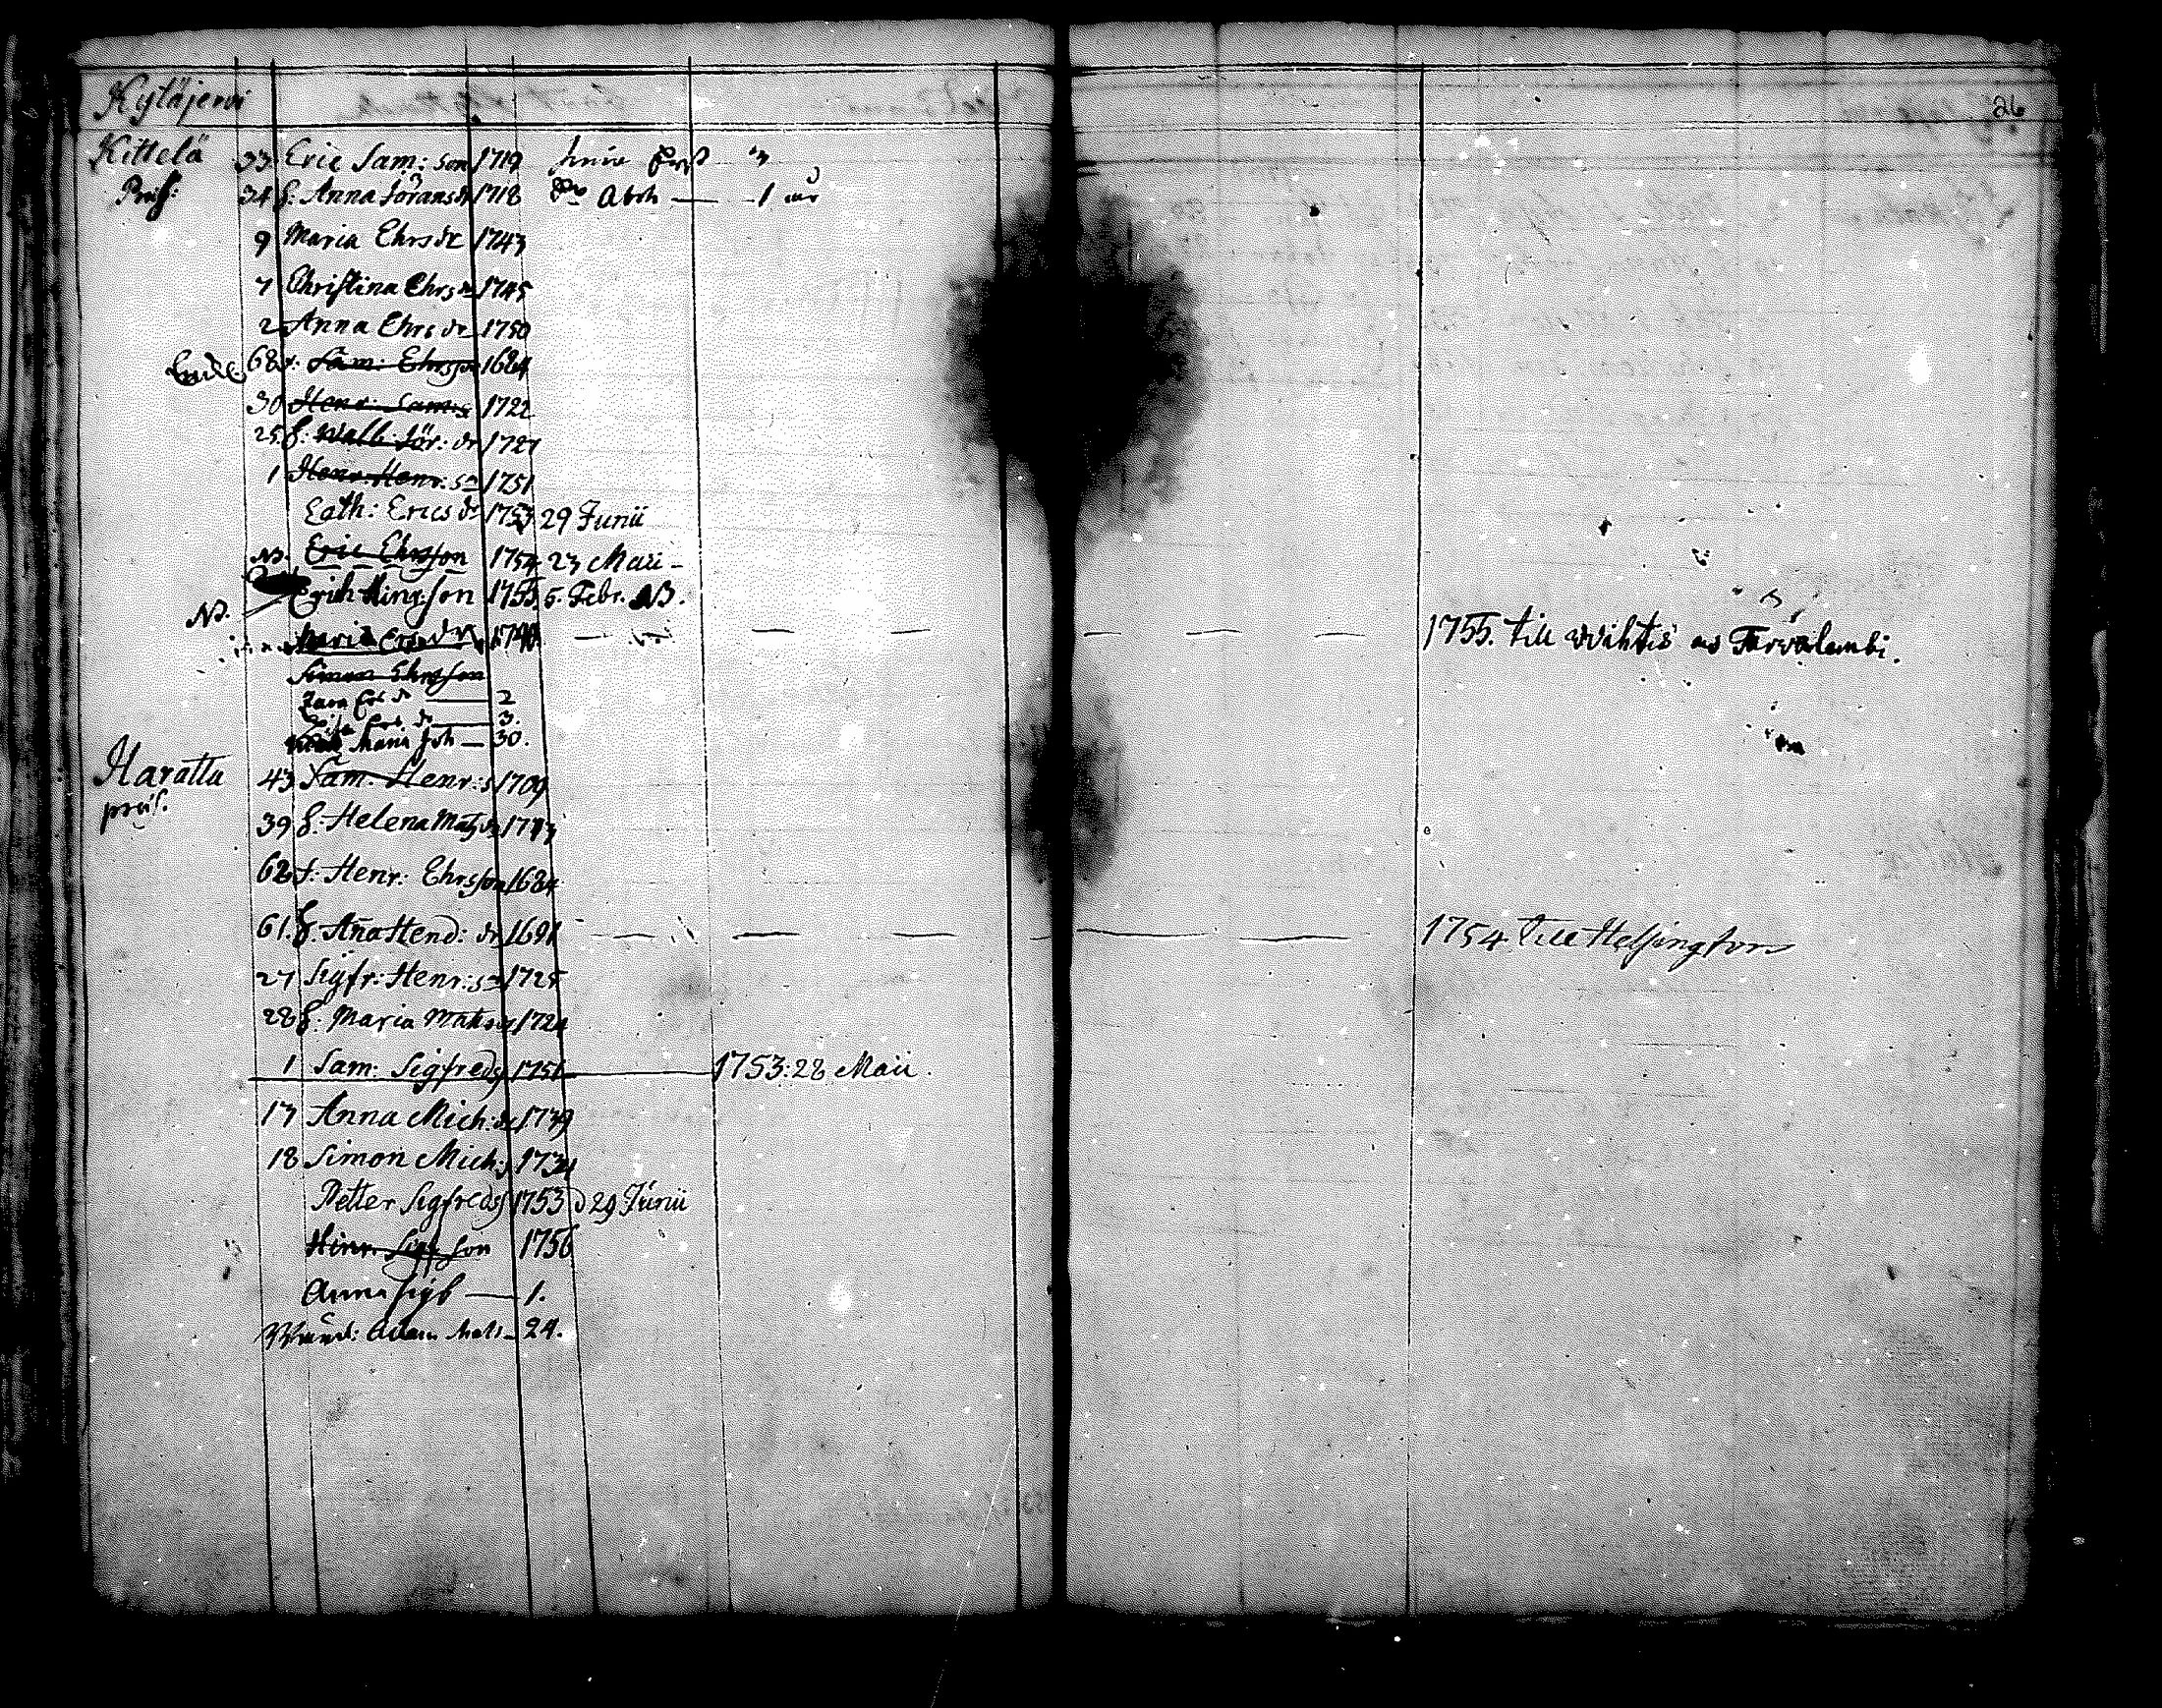 Kytäjervi
26
Kittelä 33 Eric Sam: son 1719
34 h: Anna Jöransdr 1718 1 år
9 Maria Ehrsdr 1743
7 Christina Ehrsdr 1745
2 Anna Ehrsdr 1750
68 Sam: Ehrsson 1684
30 Henr: Sam:s 1722
25 h: Walb: Jör: dr 1727
1 Henr: Henr: son 1751
Cath: Erics dr 1753 29 Junii
NB. Eric Ehrsson 1754 23 Maii
Erich Hinr:son 1755 5. Febr. NB.
NB.
Maria Ers dr 1755. till Wihtis
Simon Ehrsson
Ers dr 2
Ers dr 3.
Maria Joh 30.
Haratta 43 Sam: Henr:s 1709
39 h: Helena Matsdr 1713
68 Henr: Ehrsson 1684
61. h: Aña Hend: dr 1691 1754 till Helsingfors
27 Sigfr: Henr:son 1725
28 h: Maria Matsdr 1724
1 Sam: Sigfreds 1751 1753: 28 Maii.
13 Anna Mich:dr 1739
18 Simon Mich:s 1734
Petter Sigfreds 1753 d 29 Junii
Hinr: son 1756
Anna 1.
Adam Mats 24.